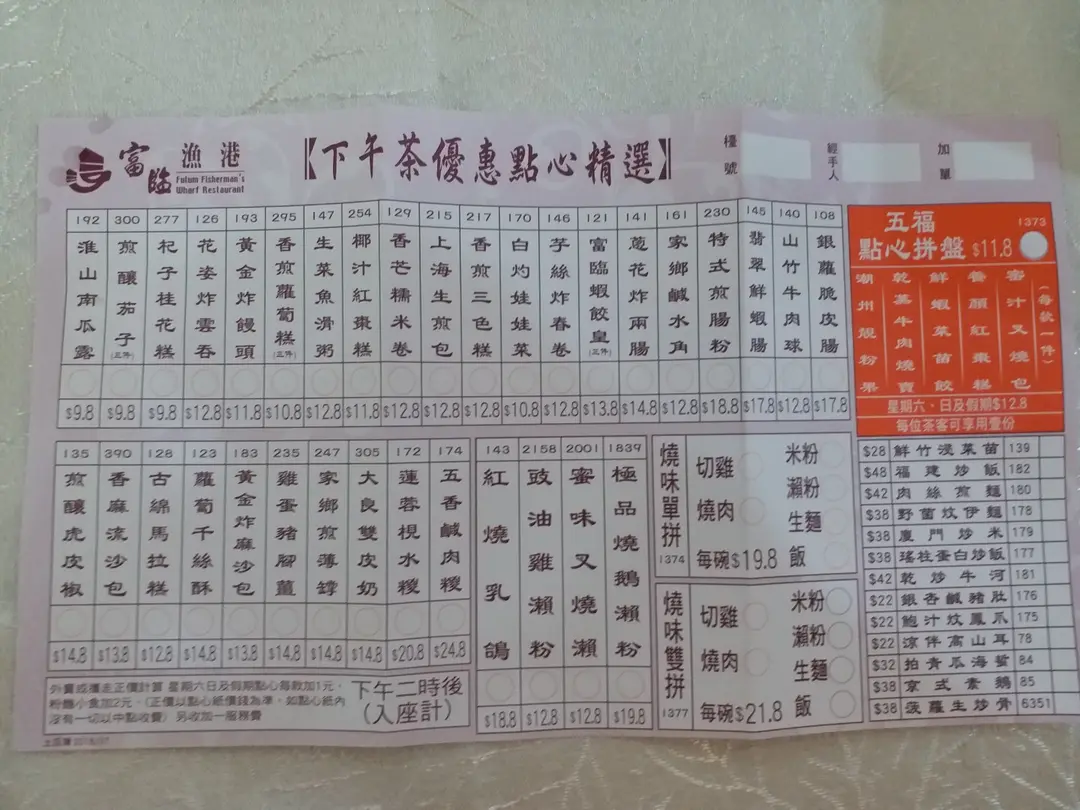 富臨 漁港
Fulum Fisherman's
Wharf Restaurant
【下午茶優惠點心精選】
檯號
經手人
加單
192 淮山南瓜露 $9.8
300 煎釀茄子(三件) $9.8
277 杞子桂花糕 $9.8
126 花姿炸雲吞 $12.8
193 黃金炸饅頭 $11.8
295 香煎蘿蔔糕(三件) $10.8
147 生菜魚滑粥 $12.8
254 椰汁紅棗糕 $11.8
129 香芒糯米卷 $12.8
215 上海生煎包 $12.8
217 香煎三色糕 $12.8
170 白灼娃娃菜 $10.8
146 芋絲炸春卷 $12.8
121 富臨蝦餃皇(三件) $13.8
141 蔥花炸兩腸 $14.8
161 家鄉鹹水角 $12.8
230 特式煎腸粉 $18.8
145 翡翠鮮蝦腸 $17.8
140 山竹牛肉球 $12.8
108 銀蘿脆皮腸 $17.8
五福 1373
點心拼盤 $11.8
潮州靚粉果
乾蒸牛肉燒賣
鮮蝦菜苗餃
養顏紅棗糕
蜜汁叉燒包
(每款一件)
星期六、日及假期$12.8
每位茶客可享用壹份
135 煎釀虎皮椒 $14.8
390 香麻流沙包 $13.8
128 古綿馬拉糕 $12.8
123 蘿蔔千絲酥 $14.8
183 黃金炸麻沙包 $13.8
235 雞蛋豬腳薑 $14.8
247 家鄉煎薄罉 $14.8
305 大良雙皮奶 $14.8
172 蓮蓉梘水糭 $20.8
174 五香鹹肉糭 $24.8
143 紅燒乳鴿 $18.8
2158 豉油雞瀨粉 $12.8
2001 蜜味叉燒瀨 $12.8
1839 極品燒鵝瀨粉 $19.8
燒味單拼 1374
切雞
燒肉
米粉
瀨粉
生麵
飯
每碗$19.8
燒味雙拼 1377
切雞
燒肉
米粉
瀨粉
生麵
飯
每碗$21.8
$28 鮮竹浸菜苗 139
$48 福建炒飯 182
$42 肉絲煎麵 180
$38 野菌炆伊麵 178
$38 廈門炒米 179
$38 瑤柱蛋白炒飯 177
$42 乾炒牛河 181
$22 銀杏鹹豬肚 176
$22 鮑汁炆鳳爪 175
$22 涼伴高山耳 78
$32 拍青瓜海蜇 84
$38 京式素鵝 85
$38 菠蘿生炒骨 6351
外賣或攞走正價計算 星期六日及假期點心每款加1元,
粉麵小食加2元。(正價以點心紙價錢為準。如點心紙內
沒有一切以中點收費) 另收加一服務費
下午二時後
(入座計)